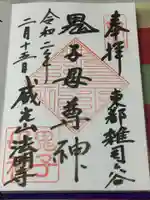 奉拝
東都雑司ヶ谷
鬼子母尊神
令和二年
二月十五日
威光山法明寺
鬼子